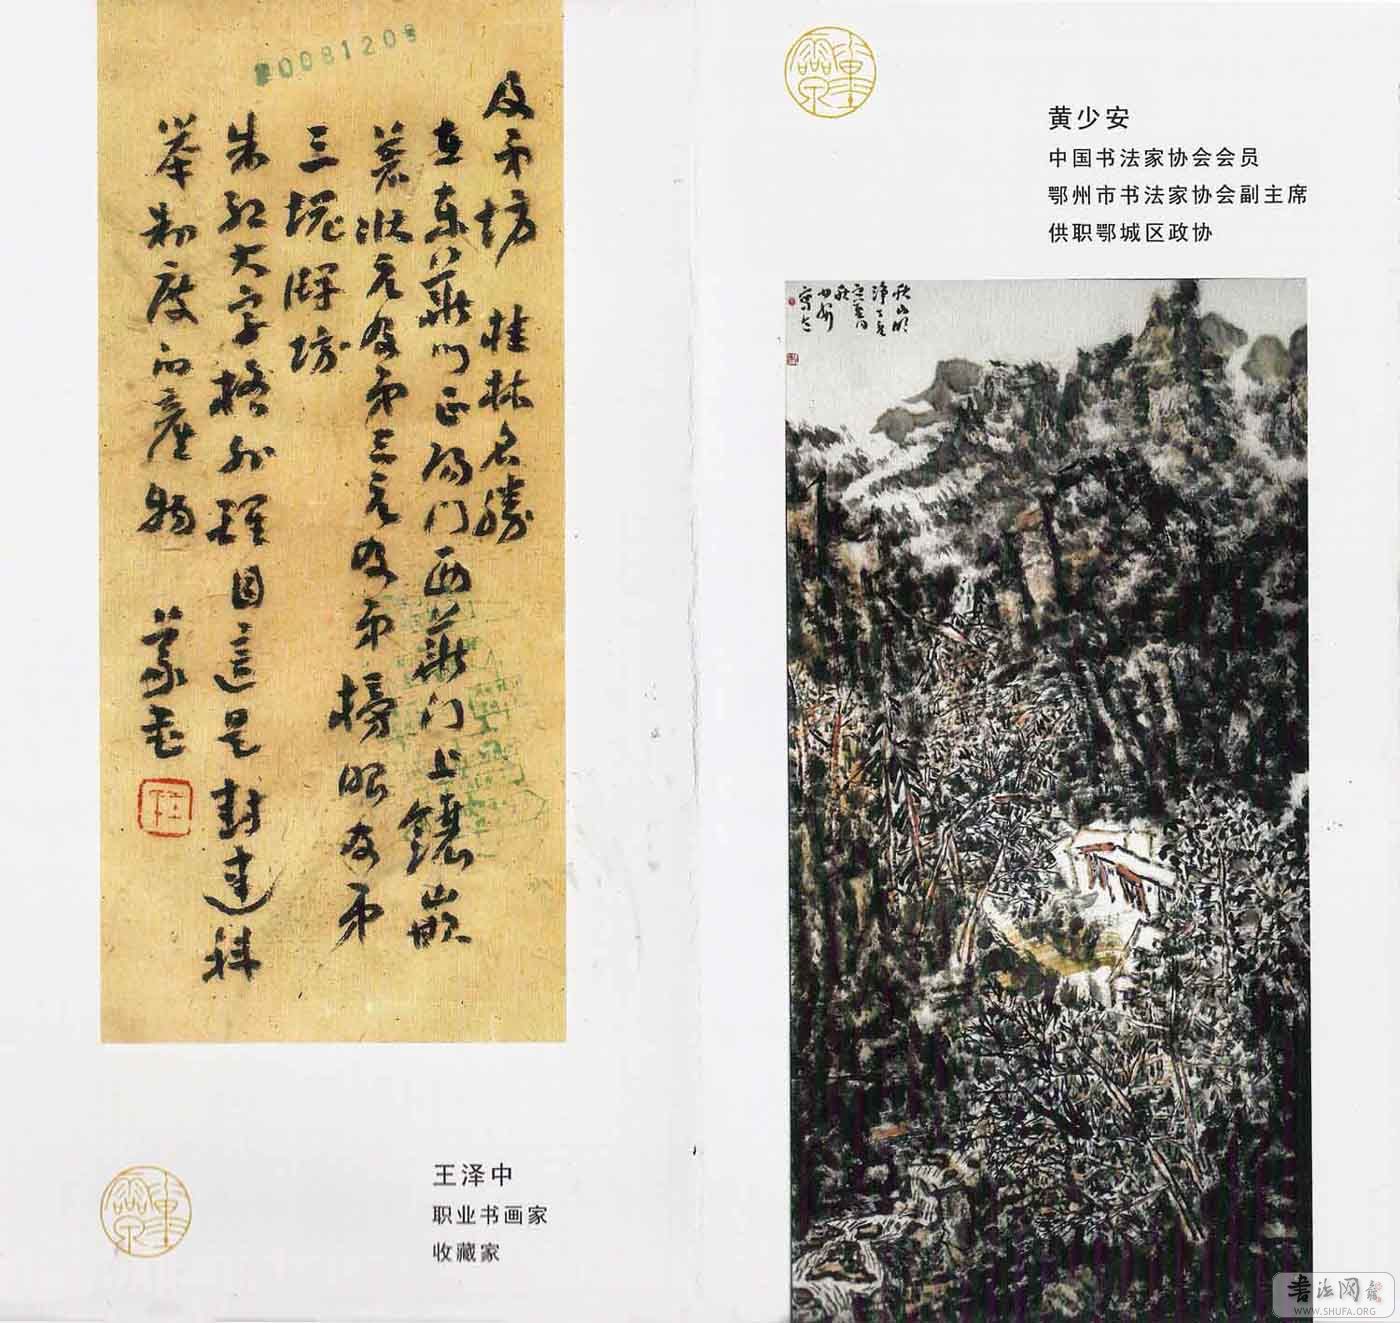 20081209
及第坊 桂林名勝
在東華門正陽門西華門上鑲嵌
着狀元及第三元及第榜眼及第
三塊牌坊
朱紅大字格外醒目這是封建科
舉制度的產物
王泽中
职业书画家
收藏家
黄少安
中国书法家协会会员
鄂州市书法家协会副主席
供职鄂城区政协
秋山明
淨
书法网
WWW.SHUFA.ORG